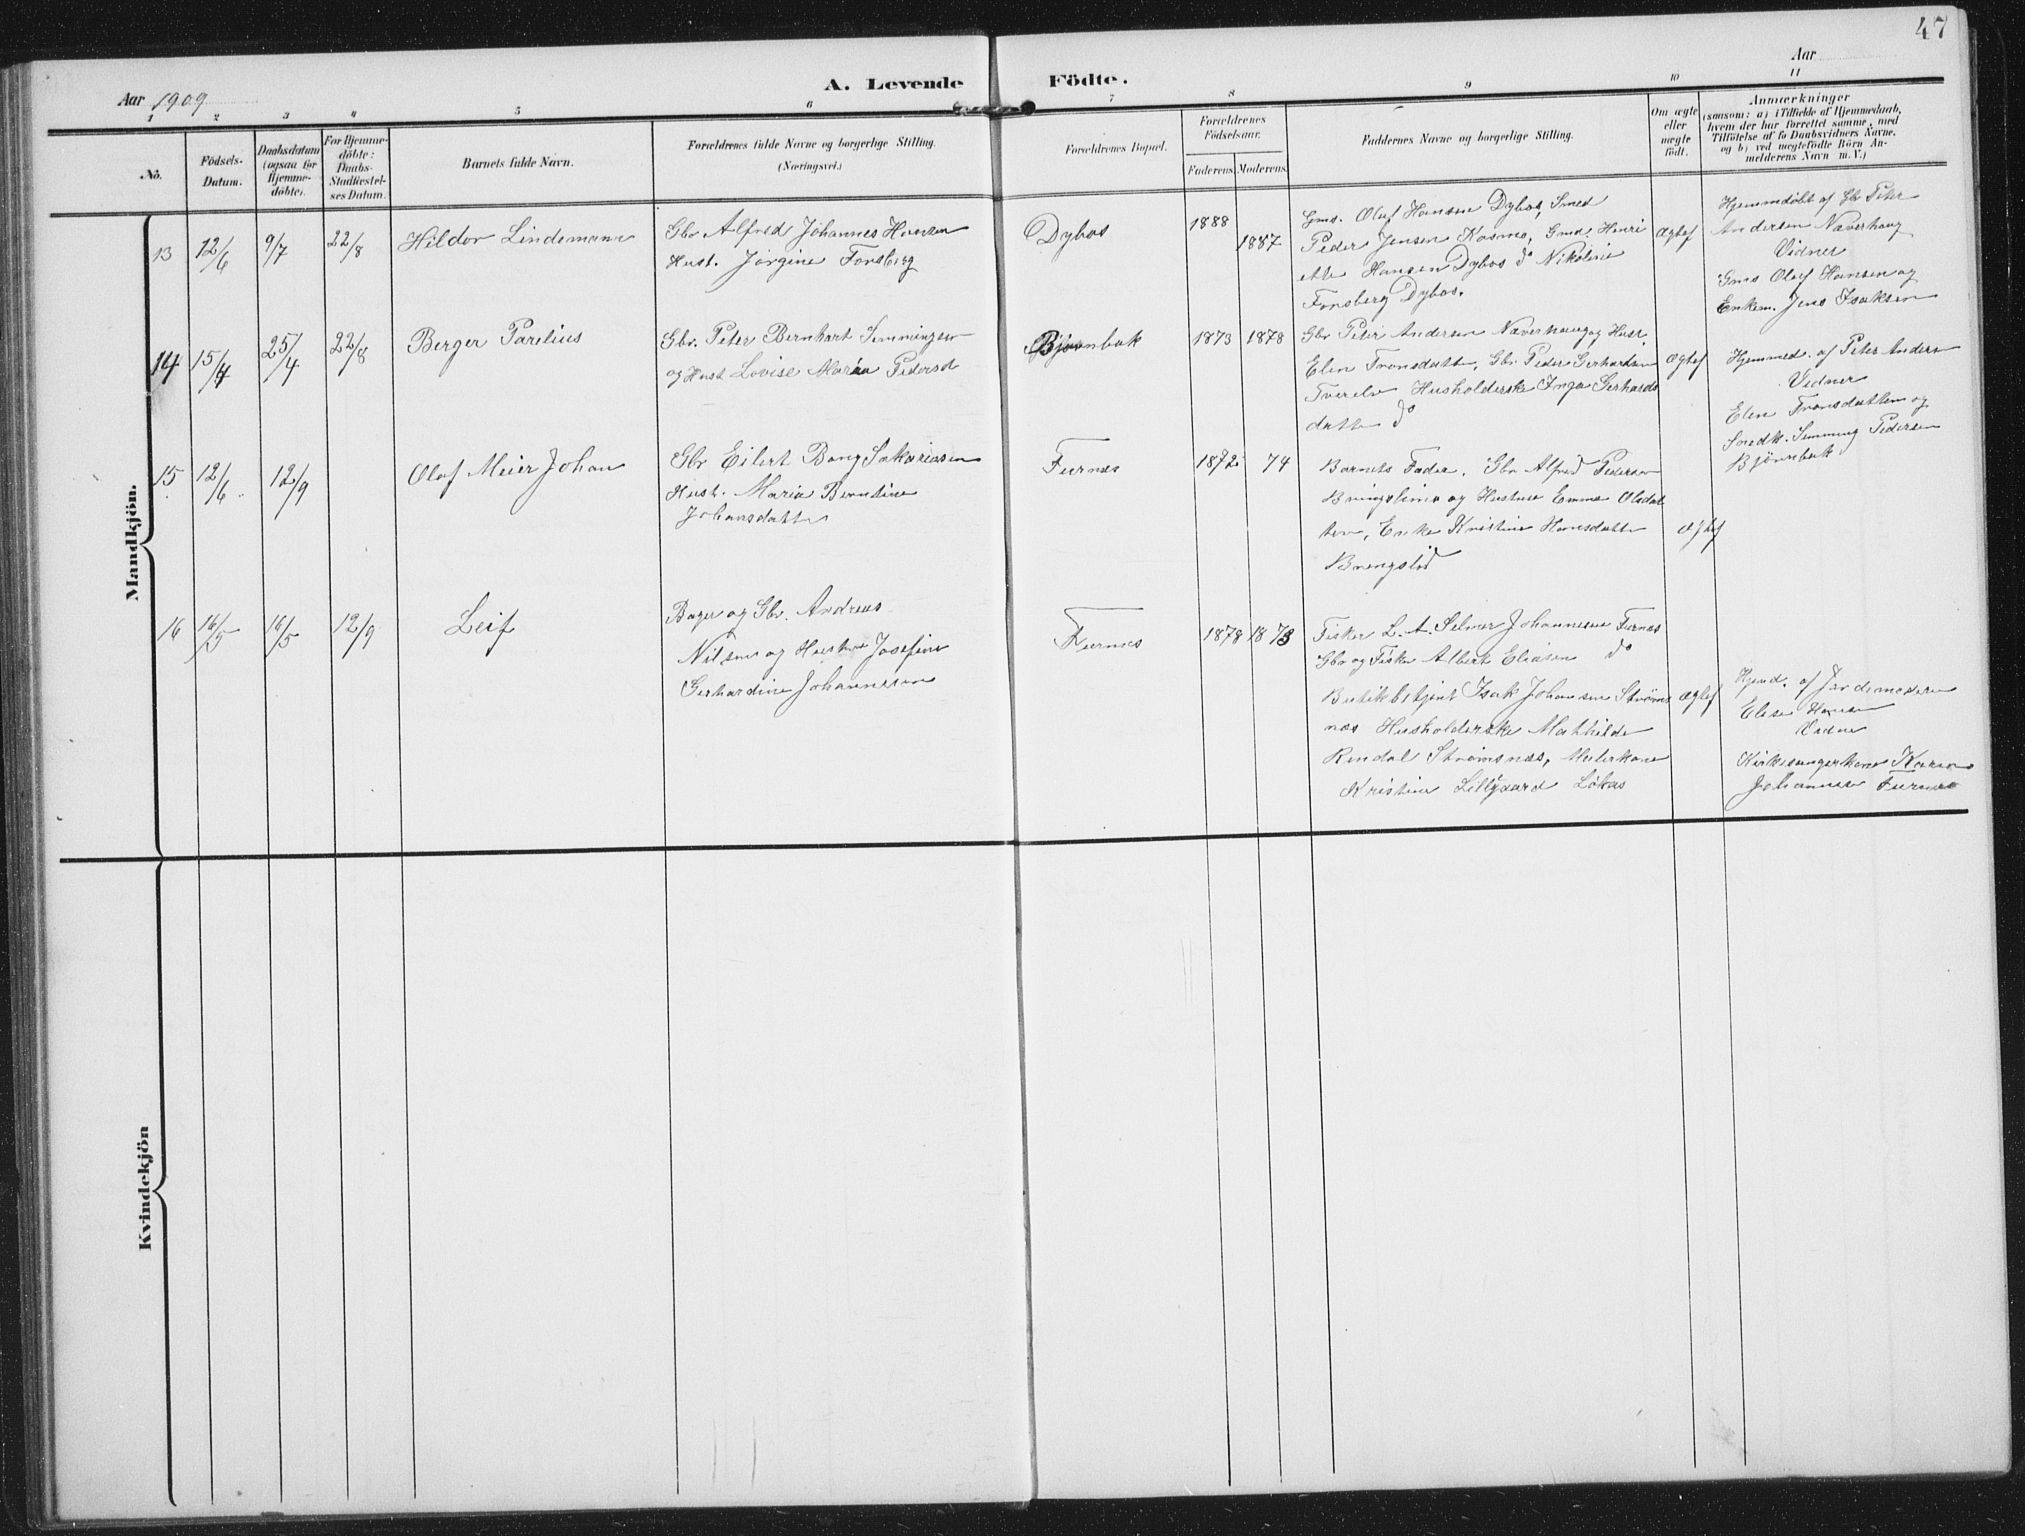 47
A. Levende Födte.
Aar 1909
Aar
1 2 3 4 5 6 7 8 9 10 11
No.
Födsels-
Datum.
Daabsdatum
(ogsaa for
Hjemme-
döbte).
For Hjemme-
döbte:
Daabs-
Stadfæstel-
ses Datum.
Barnets fulde Navn.
Forældrenes fulde Navne og borgerlige Stilling.
(Næringsvei.)
Forældrenes Bopæl.
Forældrenes
Födselsaar.
Faderens. Moderens.
Faddernes Navne og borgerlige Stilling.
Om ægte
eller
uægte
födt.
Anmærkninger
(saasom: a) i Tilfælde af Hjemmedaab,
hvem der har forrettet samme, med
Tilföielse af to Daabsvidners Navne,
og b) ved uægtefödte Börn An-
melderens Navn m. V.)
Mandkjön.
13 12/6 9/7 22/8 Hildor Lindemann
Gbr Alfred Johannes Hansen
Hust. Jørgine Forsberg
Dybos
1888 1887
Gms. Oluf Hansen Dybos, Smed
Peder Jensen Kosmo, Gmd. Henri
ette Hansen Dybos do Nikoline
Forsberg Dybos.
Ægtef
Hjemmdøbt af Gbr Peter
Andersen Naverhaug
Vidner
Gms Olof Hansen og
Enkem. Jens Isaksen
14 15/4 25/4 22/8 Berger Parelius
Gbr. Peter Bernhart Simmingsen
og Hust Lovise Maria Pedersd
Bjørnbak
1873 1878
Gbr Peter Andersen Naverhaug og Hust.
Elen Tronsdatt, Gbr. Peder Gerhardsen
Tverelv Husholderske Inga Gerhards
datt do
Ægtef
Hjemmed. af Peter Anders
Vidner
Elen Tronsdatten og
Smedk. Simming Pedersen
Bjørnbak
15 12/6 12/9 Olaf Meier Johan
Gbr Eilert Bang Sakariasen
Hust. Maria Berntine
Johansdatt
Furnes
1872 74
Barnets Fader. Gbr Alfred Pedersen
og Hustru Emma Olsdat
ten, Enke Kristine Hansdatt
Brengslid
Ægtef
16 16/5 16/5 12/9 Leif
Bager og Gbr. Andreas
Nilsen og Hustru Josefine
Gerhardine Johannesen
Furnes
1878 1873
Fisker L. A. Selmer Johannesen Furnes
Gbr og Fisker Albert Eliasen do
Butikbetjent Isak Johansen Strøms
nes Husholderske Mathilde
Rendal Strømsnes, Malerkone
Kristine Lillgaard Løkaas
Ægtef
Hjemd. af Jordemoderen
Elise Hansen
Vidne
Kirkesangerkone Karen
Johannesen Furnes
Kvindekjön